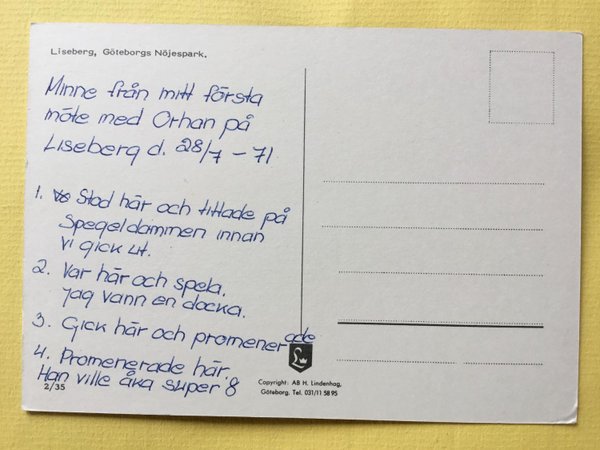 Liseberg, Göteborgs Nöjespark.
Minne från mitt första
möte med Orhan på
Liseberg d. 28/7 - 71
1. Stod här och tittade på
Spegeldammen innan
vi gick ut.
2. Var här och spela.
Jag vann en docka.
3. Gick här och promenerade
4. Promenerade här
Han ville åka super 8
2/35
L
Copyright: AB H. Lindenhag,
Göteborg, Tel. 031/11 58 95